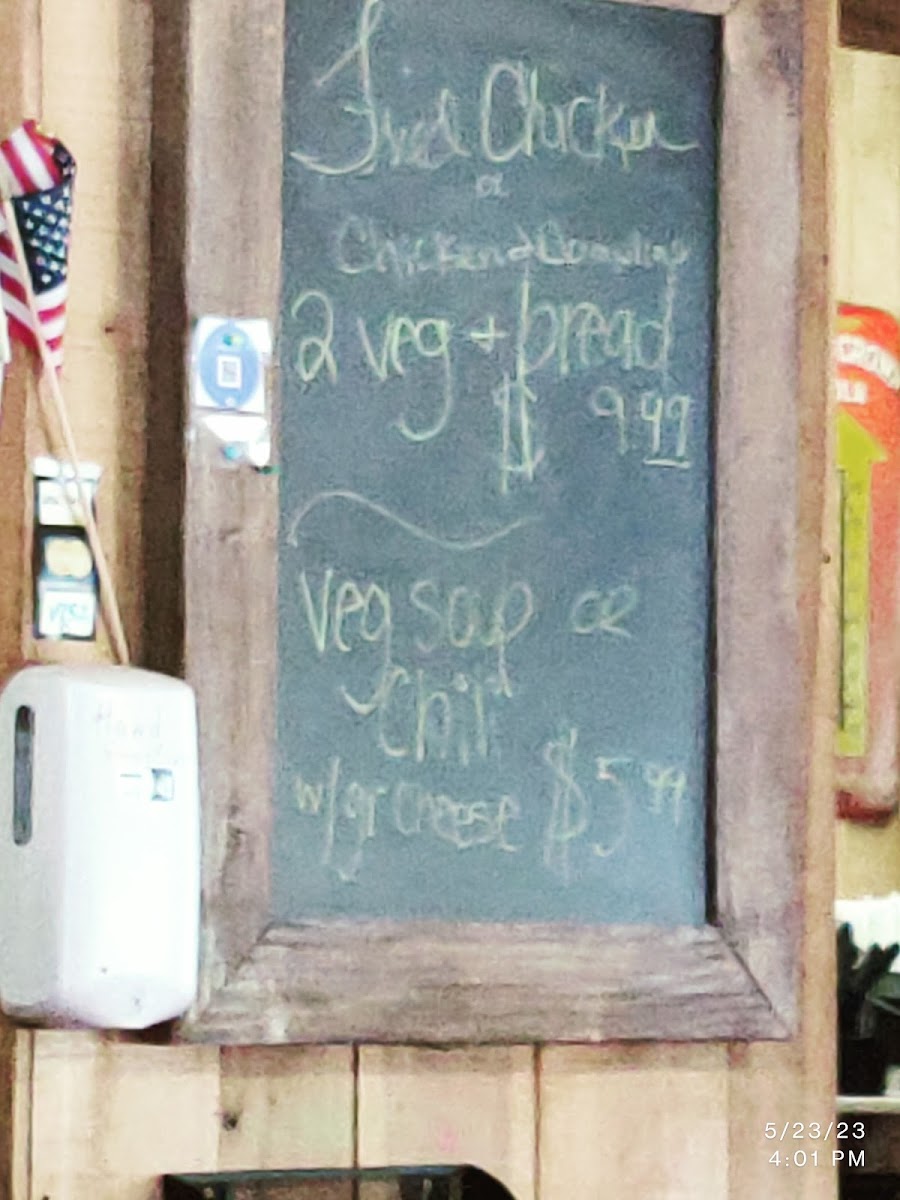 Fried Chicken
or
Chicken & Dumplings
2 veg + bread
$ 9.99
Veg Soup or
Chili
w/gr cheese $5.99
VISA
Hand
5/23/23
4:01 PM